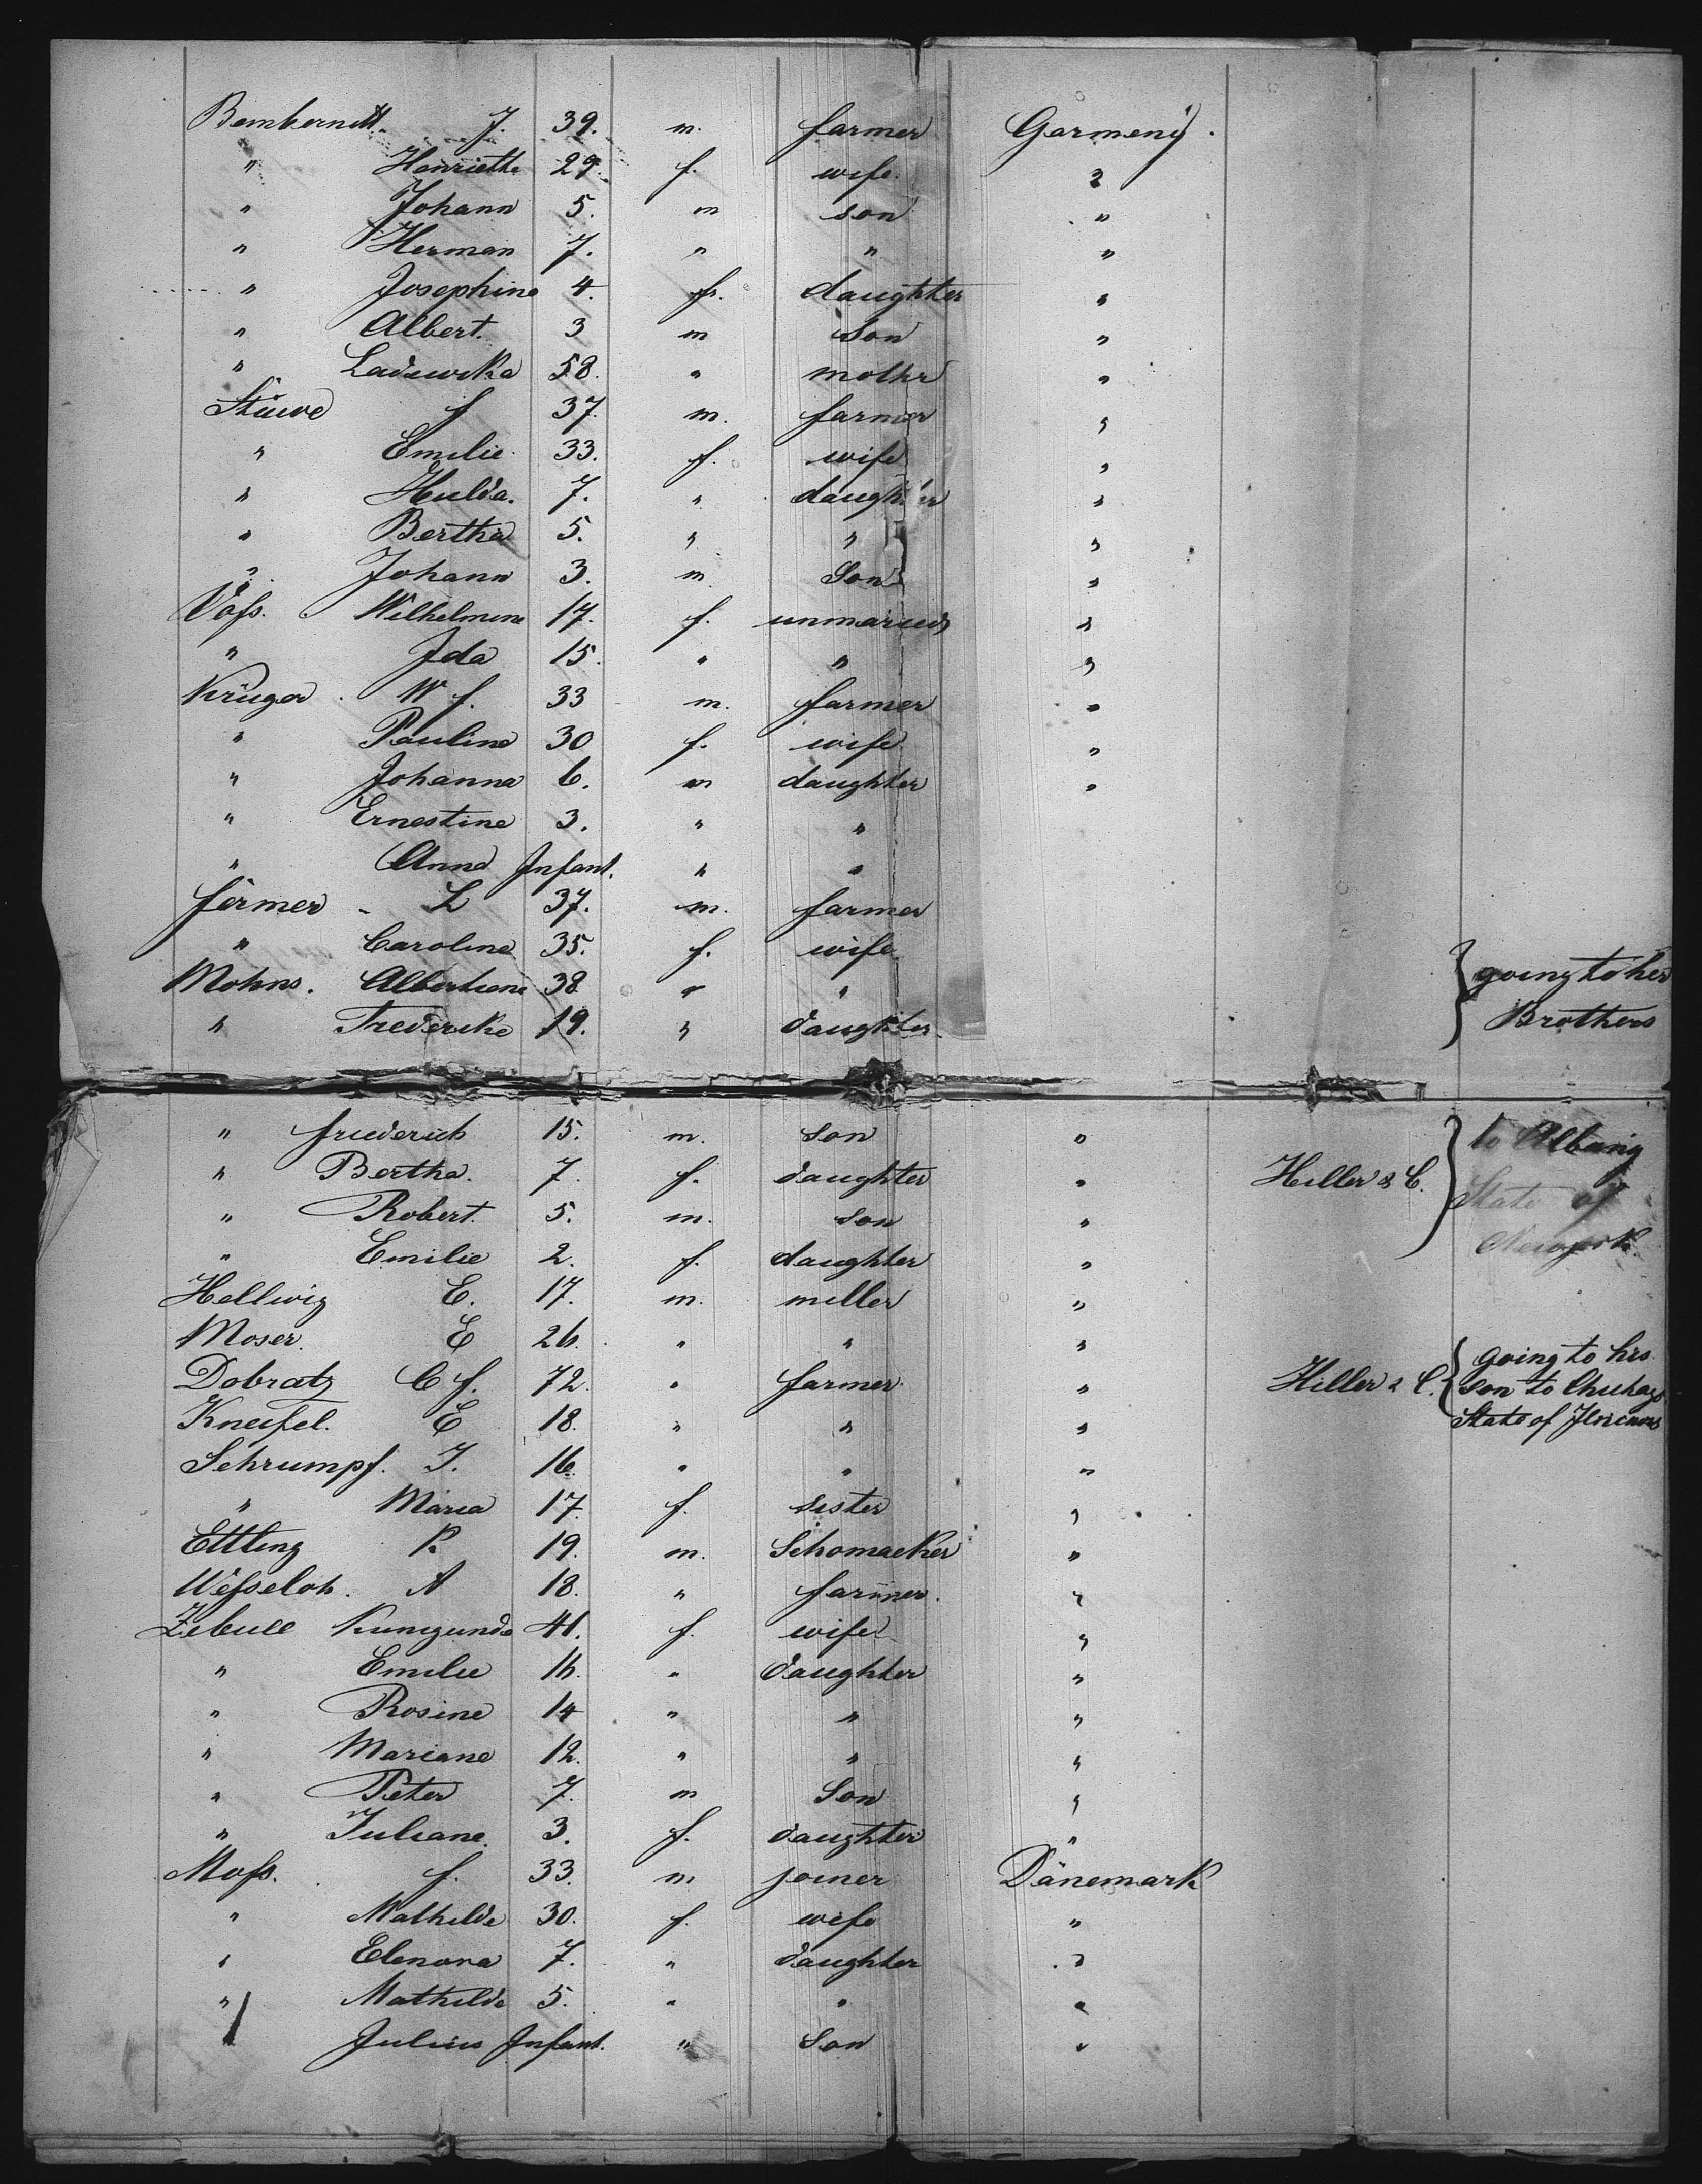 Bemberndt. J. 39. m. farmer Garmeny.
" Henriette 29. f. wife. "
" Johann 5. m son "
" Herman 7. " " "
" Josephine 4. f. daughter "
" Albert. 3 m Son "
" Laduvika 58. " mothr "
Stüwe f 37. m. farmer "
" Emilie 33. f. wife "
" Hulda. 7. " daughter "
" Bertha 5. " " "
" Johann 3. m Son "
Vofs. Wilhelmine 17. f. unmaried "
" Ida 15. " " "
Krüger W f. 33 m. farmer "
" Pauline 30 f. wife "
" Johanna 6. m daughter "
" Ernestine 3. " "
" Anna Infant. " "
förmer L 37. m. farmer
" Caroline 35. f. wife
Mohns. Albertiene 38 " " going to her
" Frederike 19. " daughter Brothers
" friederich 15. m. son " to Albany
" Bertha. 7. f. daughter " Heller & C.
" Robert. 5. m. son " State of
" Emilie 2. f. daughter " Newyork
Hellwig E. 17. m. miller "
Moser. E 26. " " " going to his
Dobratz C f. 72. " farmer " Hiller & C. son to Chickago
Kneifel. E 18. " " " State of
Schrumpf. J. 16. " " "
" Maria 17. f. sister "
Ettling R 19. m. Schomacker "
Wefseloh. A 18. " farmer. "
Zebull Kunigunde 41. f. wife "
" Emilie 16. " daughter "
" Rosine 14 " " "
" Mariane 12. " " "
" Peter 7. m Son "
" Juliane. 3. f. daughter "
Mofs. f. 33. m. joiner Dänemark
" Mathilde 30. f. wife "
" Elenora 7. " daughter "
" Mathilde 5. " " "
" Julius Infant. " Son "